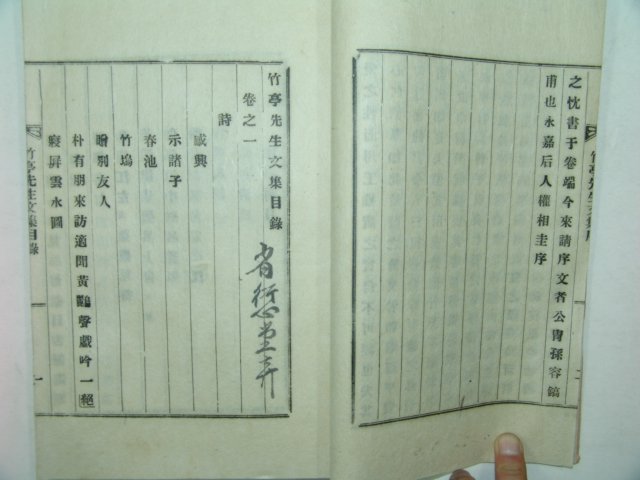 之忱書于卷端今來請序文者公胄孫容鎬
甫也永嘉后人權相圭序
竹亭先生文集序
二
竹亭先生文集目錄
卷之一
詩
感興
示諸子
春池
竹塢
贈別友人
朴有朋來訪適聞黃鸝聲戲吟一絕
寢屛雲水圖
竹亭先生文集目錄
一
省愆堂弆